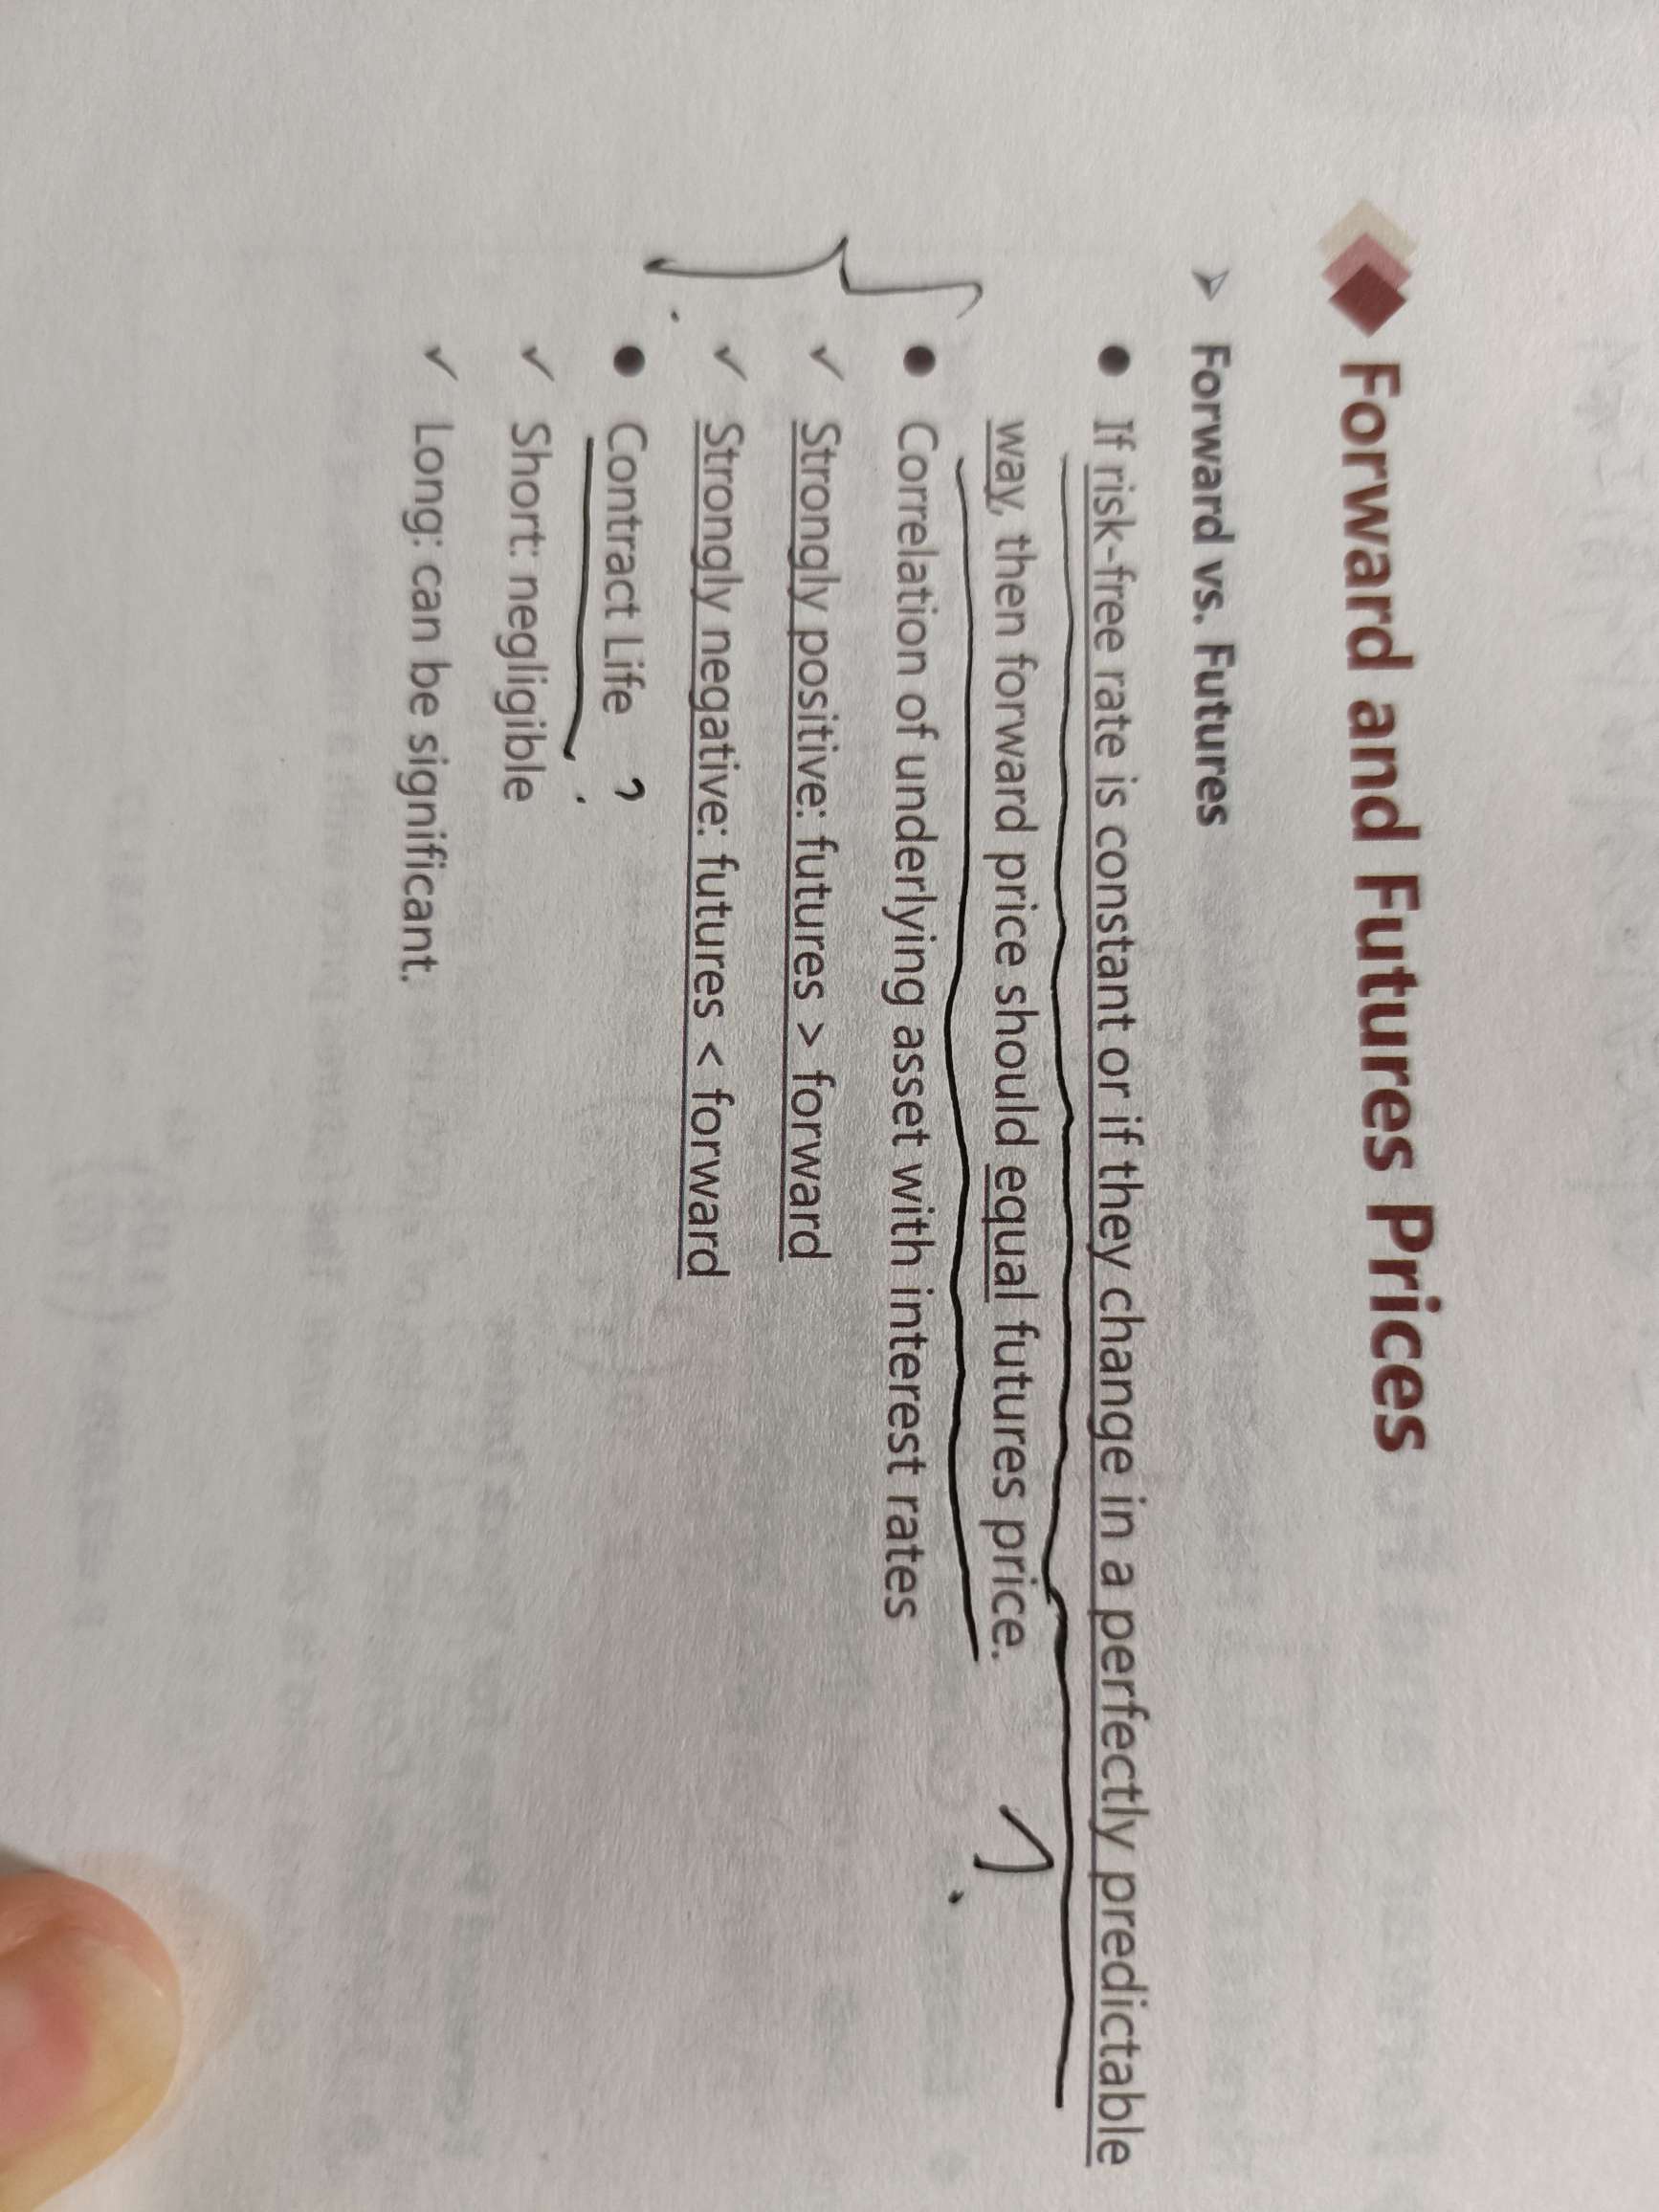 Forward and Futures Prices
➢ Forward vs. Futures
● If risk-free rate is constant or if they change in a perfectly predictable
way, then forward price should equal futures price. ?
● Correlation of underlying asset with interest rates
✓ Strongly positive: futures > forward
✓ Strongly negative: futures < forward
● Contract Life ?
✓ Short: negligible
✓ Long: can be significant.